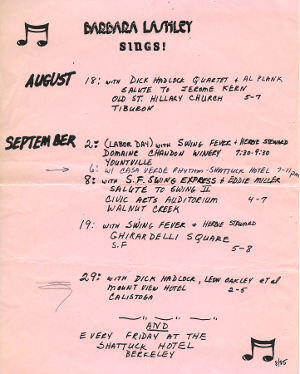 BARBARA LASHLEY
SINGS!
AUGUST 18: WITH DICK HADLOCK QUARTET & AL PLANK
SALUTE TO JEROME KERN
OLD ST. HILLARY CHURCH 5-7
TIBURON
SEPTEMBER 2: (LABOR DAY) WITH SWING FEVER & HERBIE STEWARD
DOMAINE CHANDON WINERY 7:30-9:30
YOUNTVILLE
6: W/ CASA VERDE RHYTHM-SHATTUCK HOTEL 7-11PM
8: WITH S.F. SWING EXPRESS & EDDIE MILLER
SALUTE TO SWING II
CIVIC ARTS AUDITORIUM 4-7
WALNUT CREEK
19: WITH SWING FEVER & HERBIE STEWARD
GHIRARDELLI SQUARE
S.F 5-8
29: WITH DICK HADLOCK, LEON OAKLEY et al
MOUNT VIEW HOTEL 2-5
CALISTOGA
AND
EVERY FRIDAY AT THE
SHATTUCK HOTEL
BERKELEY
8/85